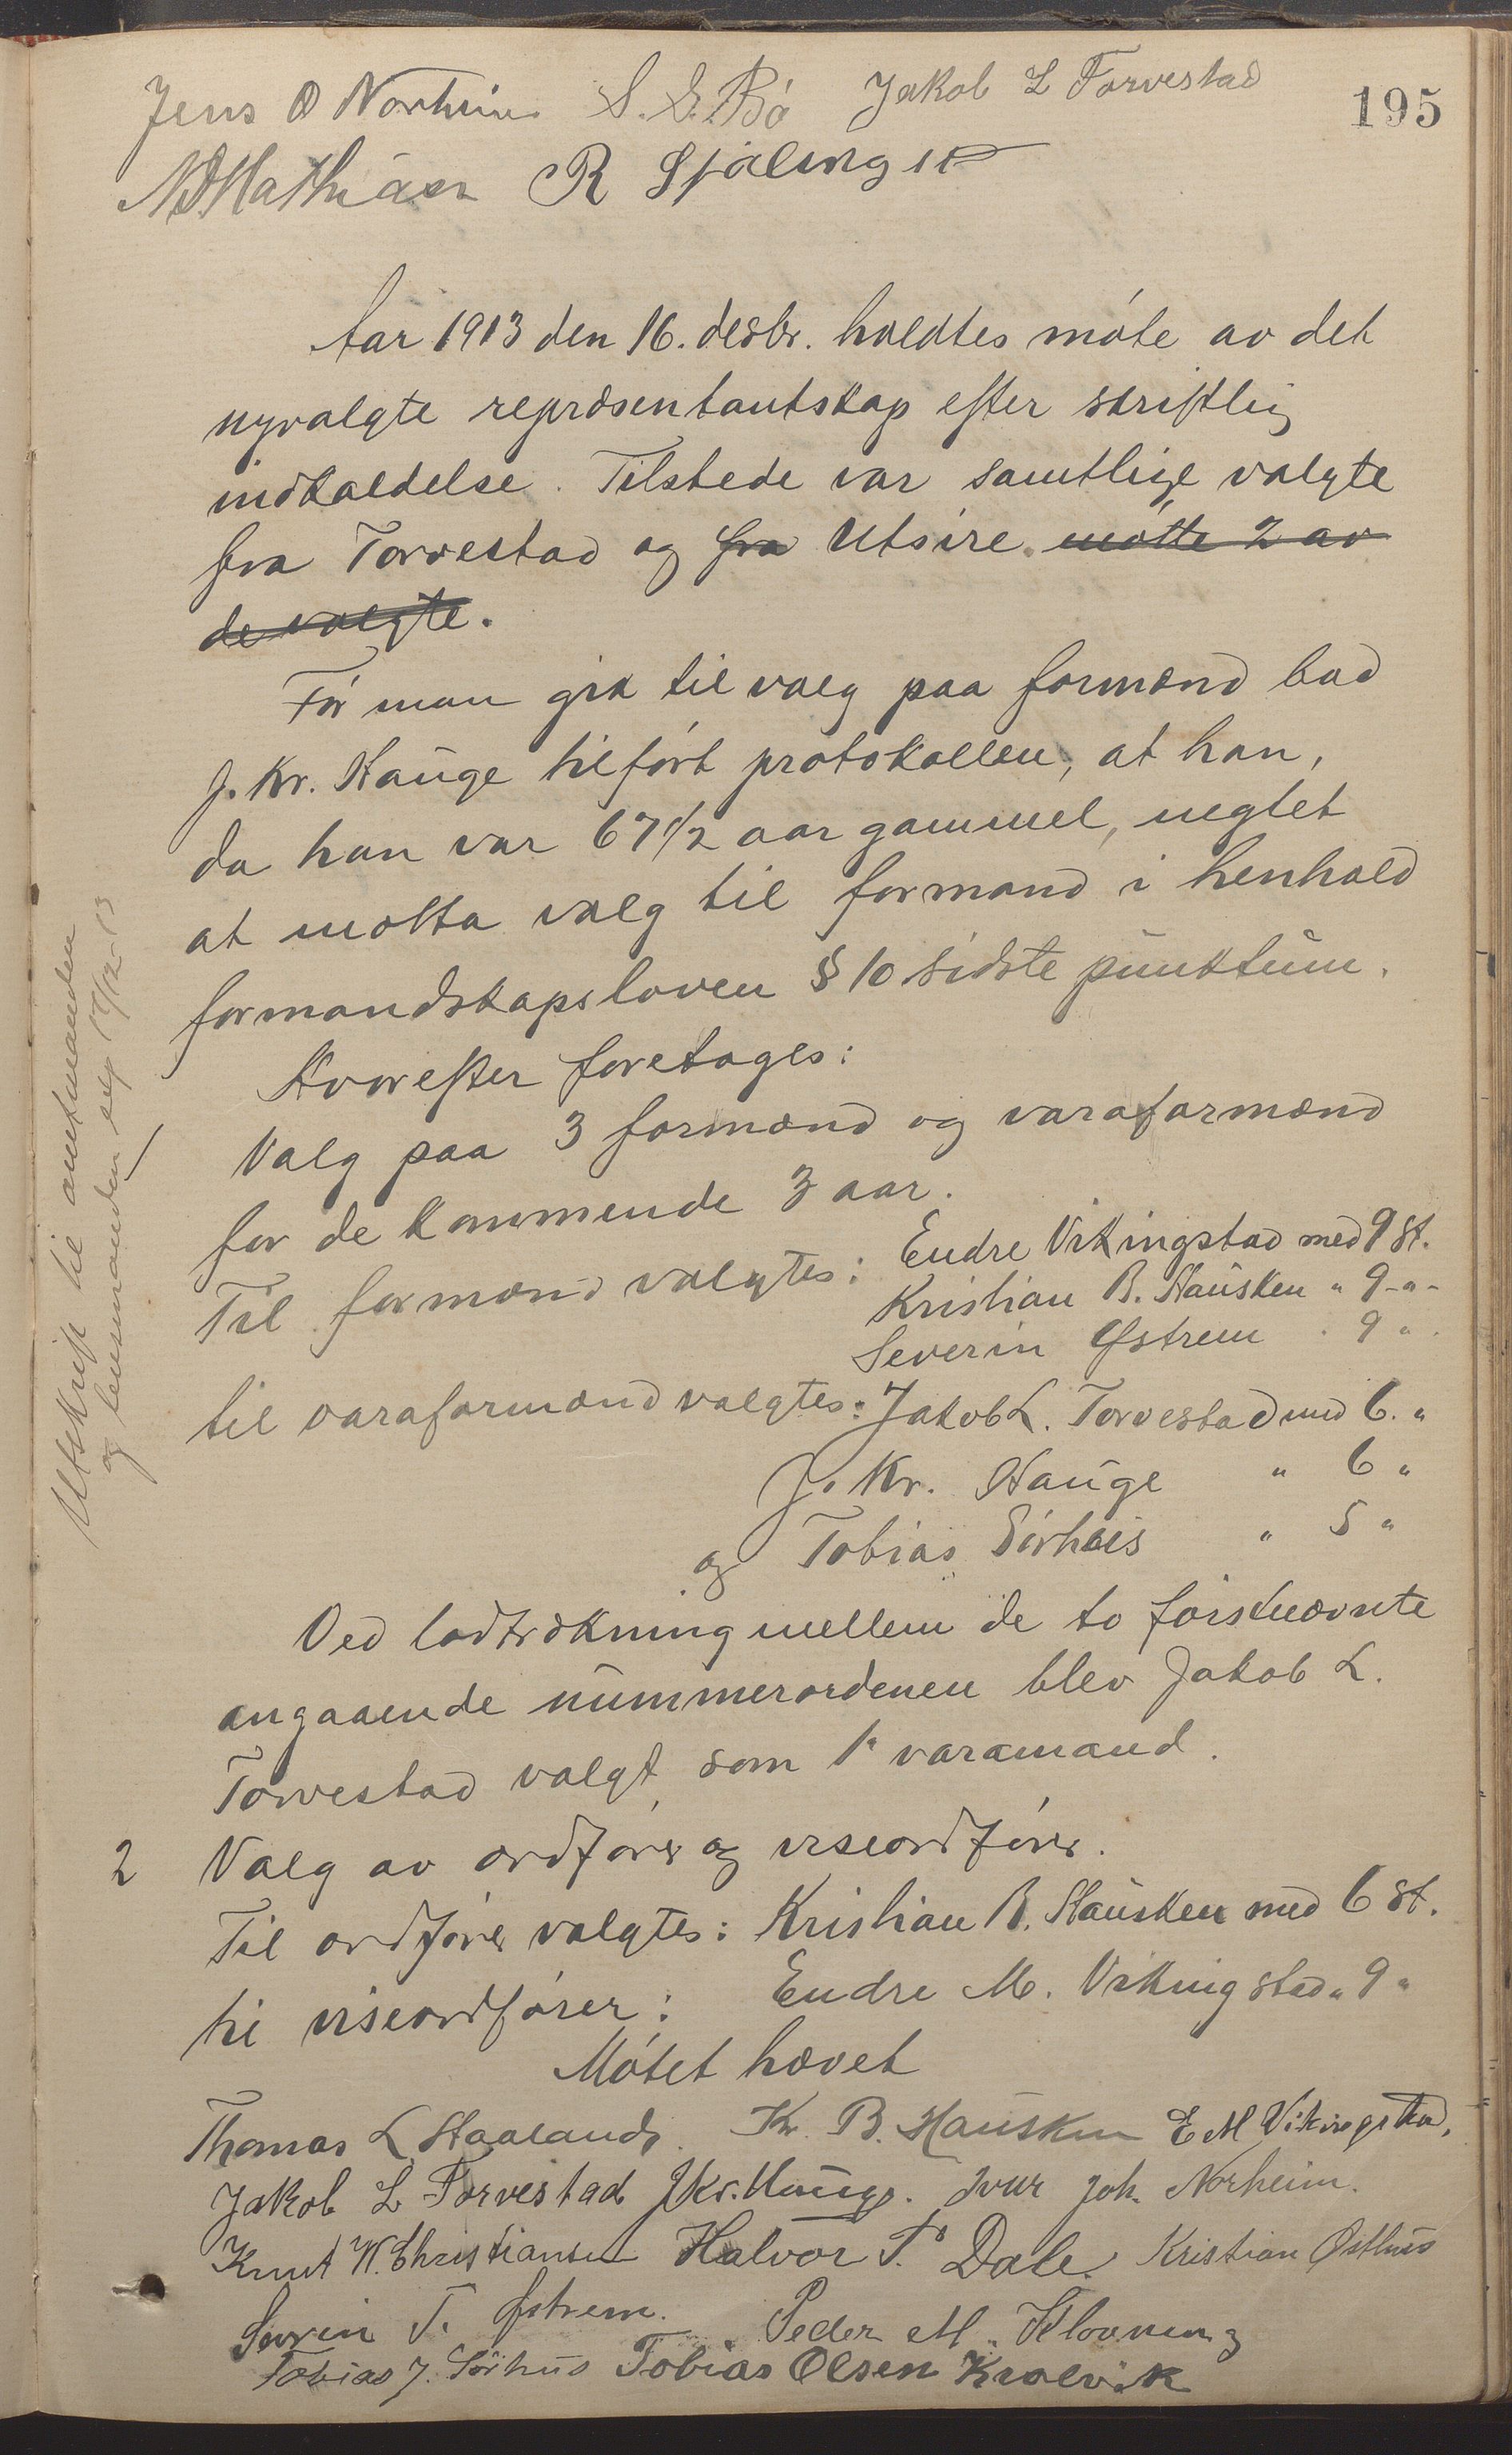 195
Jens O Northun S. S. Bö Jakob L Torvestad
M. Mathiasen R Sjølingst
Aar 1913 den 16. desbr. holdtes móte av det
nyvalgte repræsentantskap efter skriftlig
indkaldelse. Tilstede var samtlige valgte
fra Torvestad og fra Utsire. mótte 2 av
de valgte.
Fór man gik til valg paa formænd bad
J. Kr. Hauge tilfórt protokollen, at han,
da han var 67 1/2 aar gammel, negtet
at motta valg til formand i henhold
formandskapsloven § 10 sidste punktum.
Hvorefter foretages:
Valg paa 3 formænd og varaformænd
for de kommende 3 aar.
Til formænd valgtes: Endre Vikingstad med 9 st.
Kristian B. Hausken " 9 - " -
Severin Østrem " 9 "
til varaformænd valgtes: Jakob L. Torvestad med 6. "
J. Kr. Hauge " 6 "
og Tobias Sórhus " 5 "
Ved lodtrækning mellem de to fórstnævnte
angaaende nummerordenen blev Jakob L.
Torvestad valgt som 1ª varamand.
2 Valg av ordfórer og viseordfórer.
Til ordfórer valgtes: Kristian B. Hausken med 6 st.
til viseordfórer: Endre M. Vikingstad " 9 "
Mótet hævet
Thomas L Haaland. Kr. B. Hausken E M Vikingstad,
Jakob L Torvestad J Kr. Hauge. Ivar Joh. Norheim.
Knut W. Christiansen Halvor T. Dale. Kristian Østhus
Severin T. Østrem. Peder M. Klovning
Tobias J. Sörhus Tobias Olsen Kvalvik
Utskrift til amtmanden
og lensmanden 17/12-13